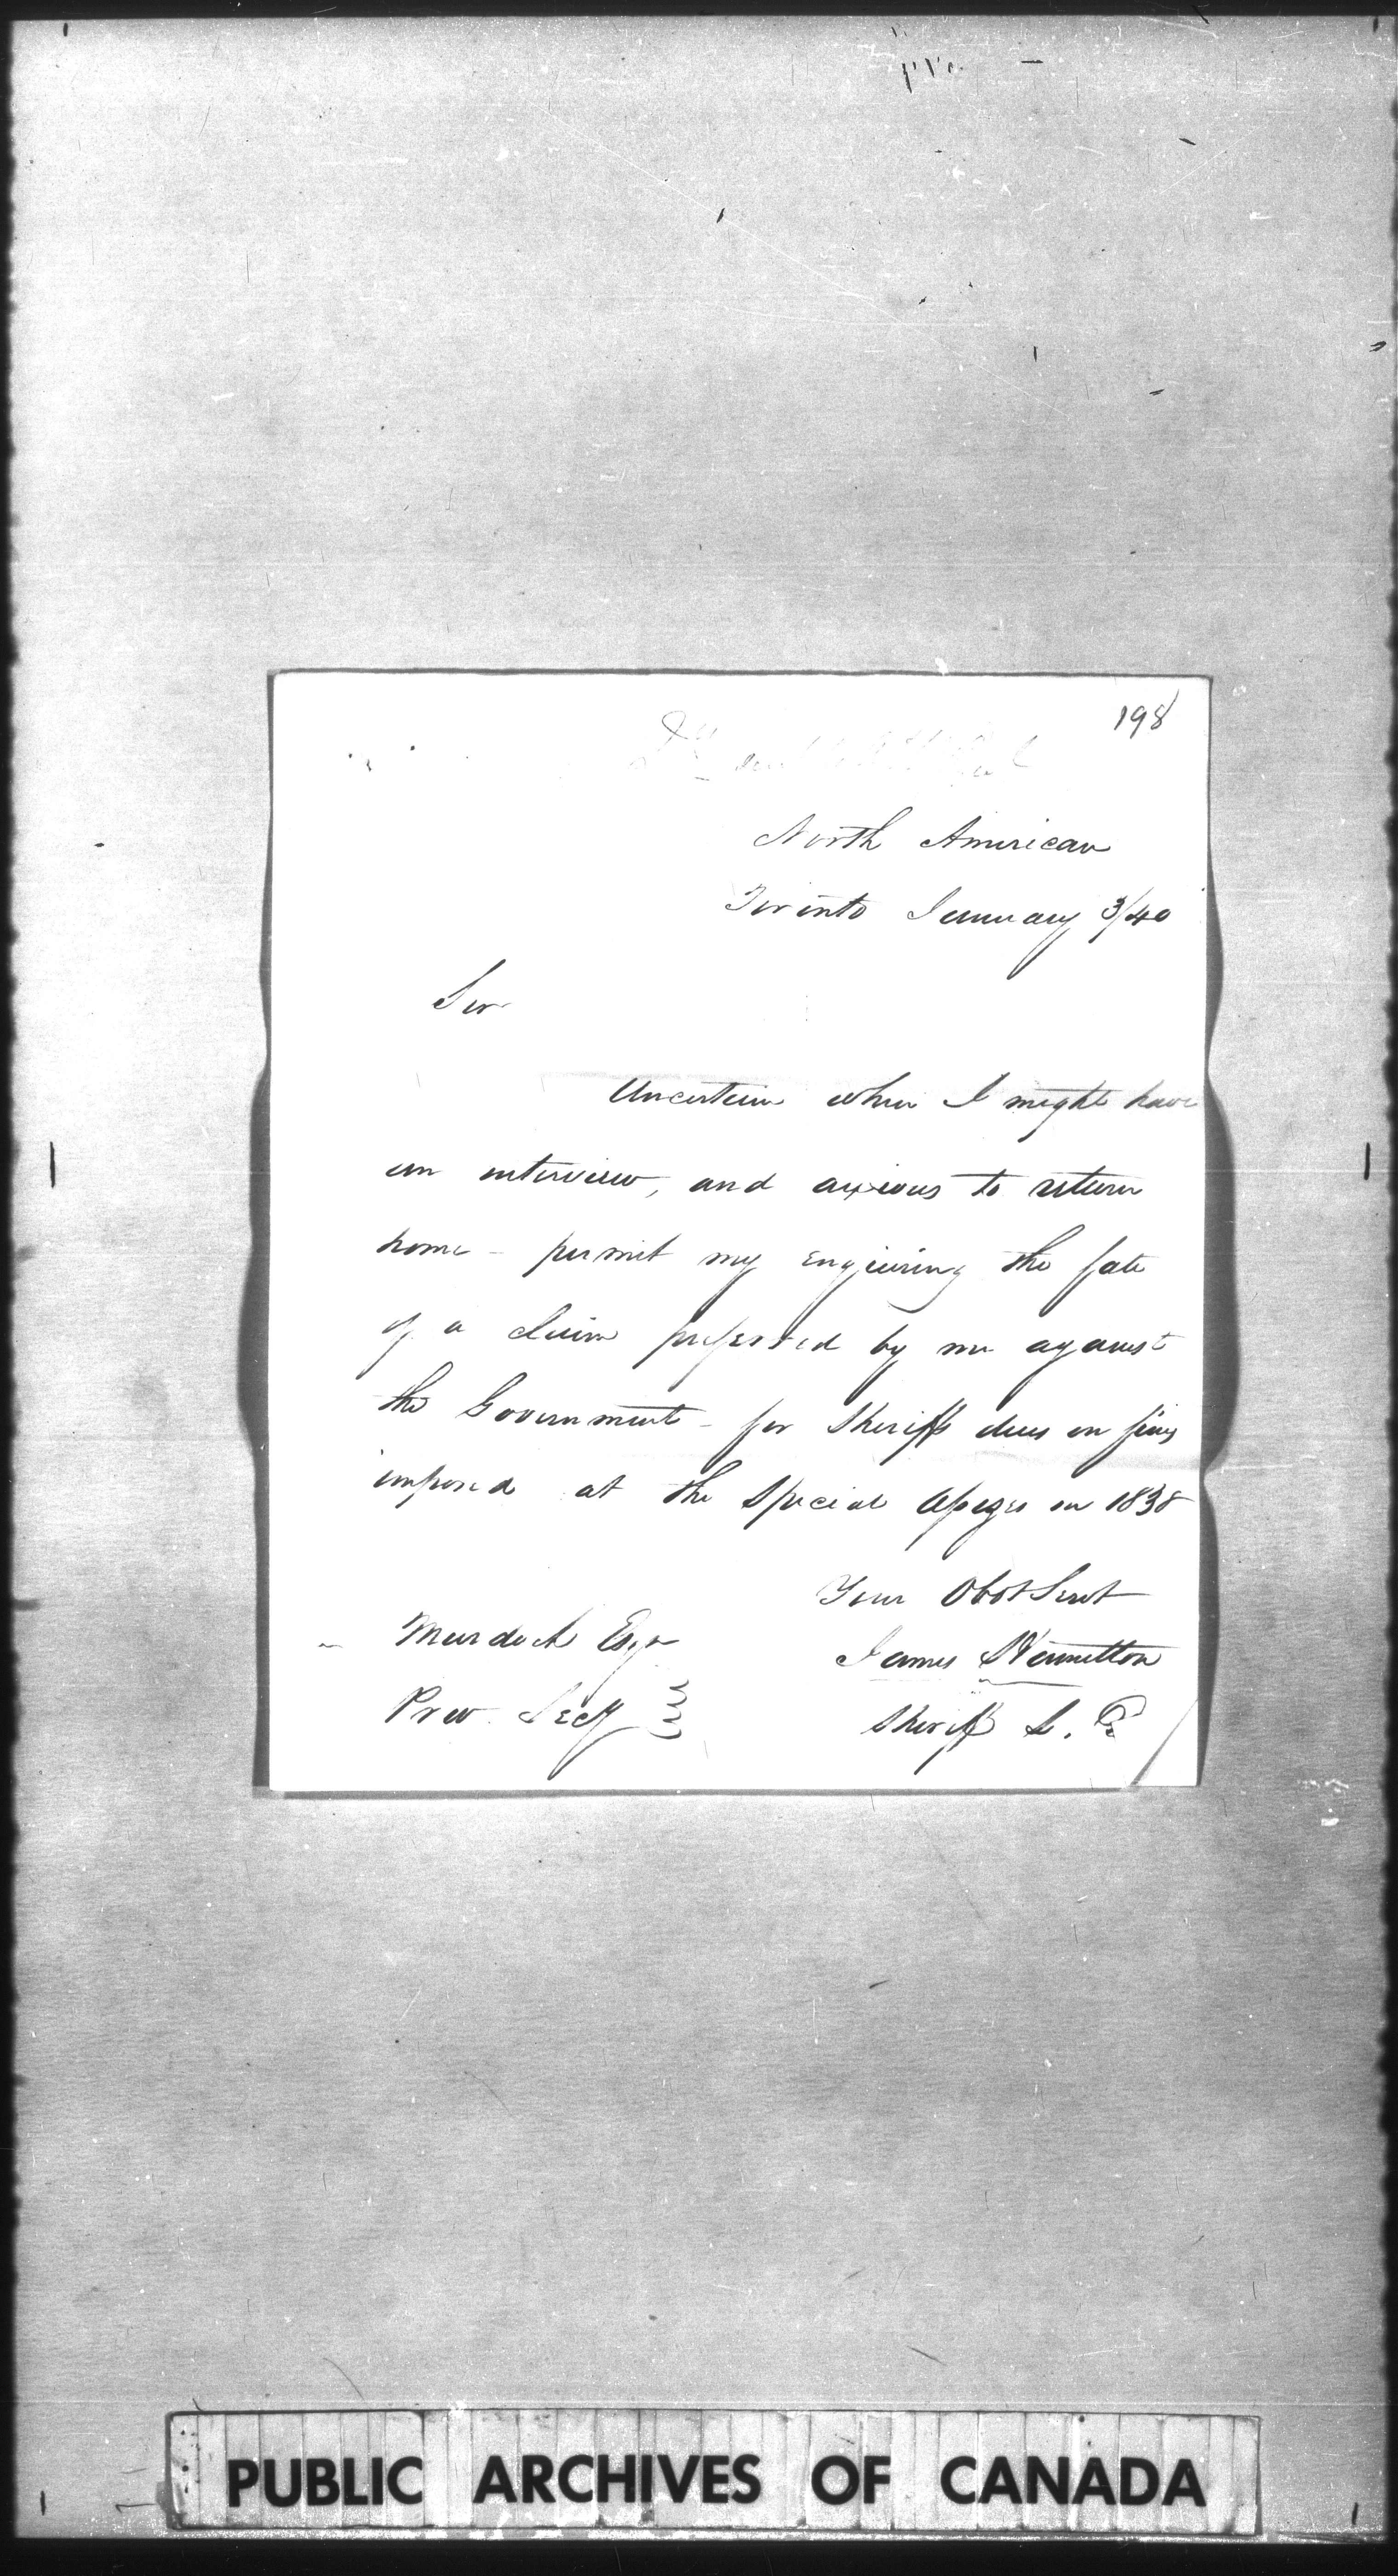 198
North American
Toronto January 3/40
Sir
Uncertain when I might have
an interview, and anxious to return
home - permit my enquiring the fate
of a claim preferred by me against
the Government - for Sheriffs dues on fines
imposed at the Special Assizes in 1838
Your Obdt Servt
James Hamilton
Sheriff L. D.
Murdoch Esqr
Prov. Secy
PUBLIC ARCHIVES OF CANADA